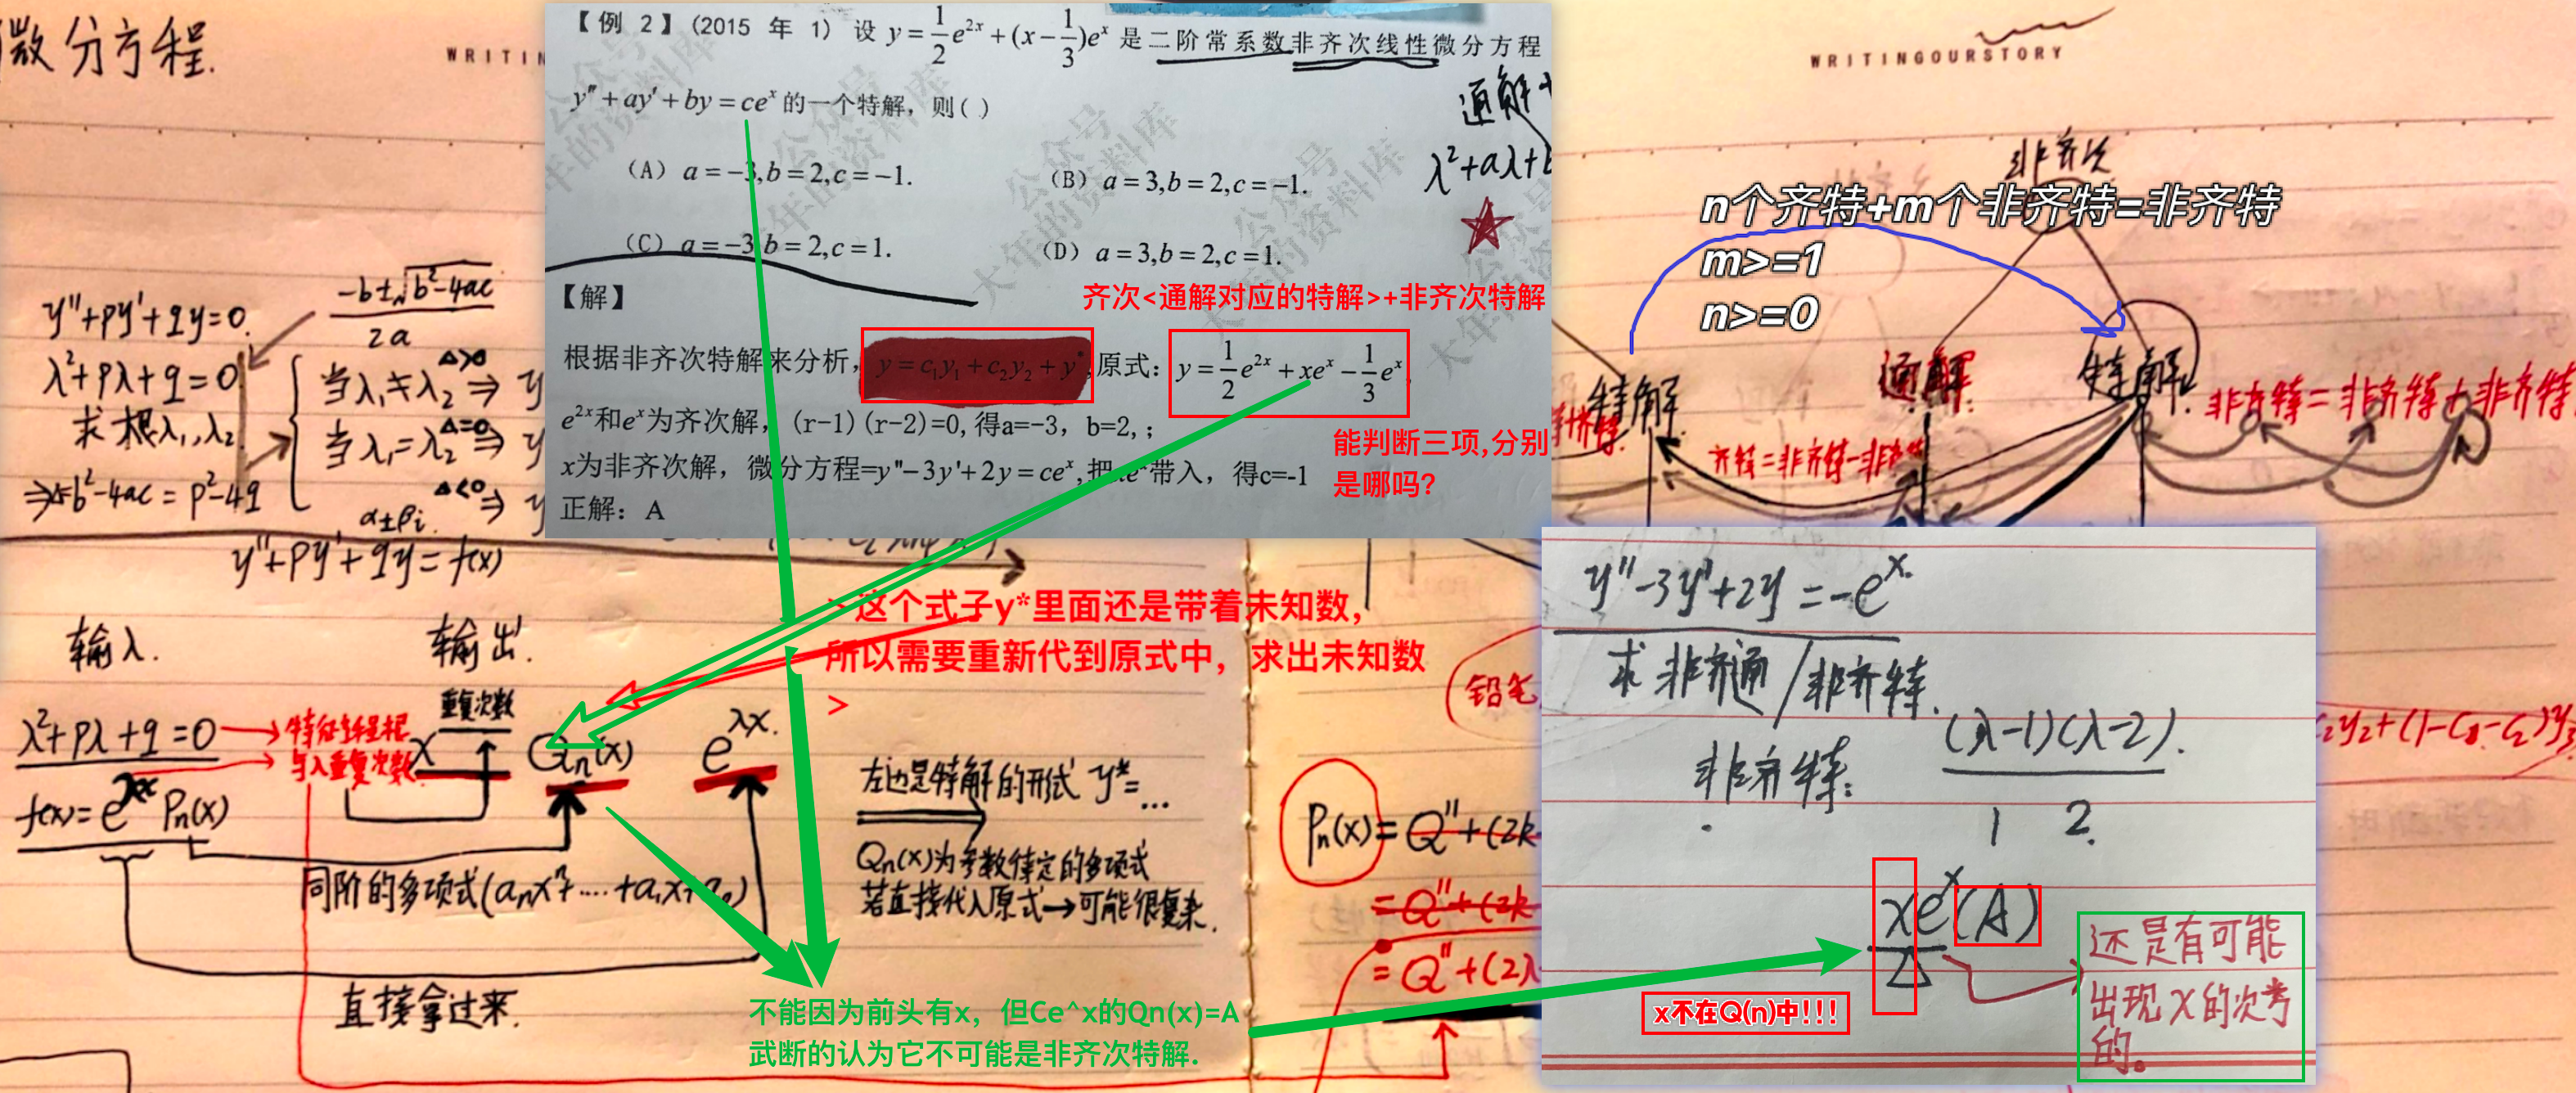 微分方程.
WRITIN
y''+py'+qy=0.
λ²+pλ+q=0
求根λ₁,λ₂
⇒Δ=b²-4ac=p²-4q
-b±√b²-4ac
2a
Δ>0
当λ₁≠λ₂⇒y
Δ=0
当λ₁=λ₂⇒y
Δ<0
α±βi
⇒y
y''+py'+qy=f(x)
【例 2】(2015 年 1) 设 y=1/2e^{2x}+(x-1/3)e^x 是二阶常系数非齐次线性微分方程
y''+ay'+by=ce^x 的一个特解，则( )
(A) a=-3,b=2,c=-1.
(B) a=3,b=2,c=-1.
(C) a=-3,b=2,c=1.
(D) a=3,b=2,c=1.
通解
λ²+aλ+
【解】
齐次<通解对应的特解>+非齐次特解
根据非齐次特解来分析，y=c₁y₁+c₂y₂+y*,原式：y=1/2e^{2x}+xe^x-1/3e^x,
e^{2x}和e^x为齐次解，(r-1)(r-2)=0,得a=-3, b=2,；
x为非齐次解，微分方程=y''-3y'+2y=ce^x,把xe^x带入，得c=-1
正解：A
能判断三项,分别
是哪吗?
公众号
大年的资料库
WRITINGOURSTORY
非齐次
n个齐特+m个非齐特=非齐特
m>=1
n>=0
特解
通解
特解
非齐特=非齐特+非齐特
齐特=非齐特-非齐特
输入.
输出.
λ²+pλ+q=0
f(x)=e^{λx}Pn(x)
特征方程根
与λ重复次数
重复次数
x
Qn(x)
e^{λx}.
>这个式子y*里面还是带着未知数,
所以需要重新代到原式中，求出未知数
>
左边是特解的形式 y*=...
Qn(x)为参数待定的多项式
若直接代入原式→可能很复杂.
同阶的多项式(anx^n+....+a₁x+a₀)
直接拿过来.
不能因为前头有x，但Ce^x的Qn(x)=A
武断的认为它不可能是非齐次特解.
铅笔
Pn(x)=Q''+(2k
=Q''+(2k
=Q''+(2λ
y''-3y'+2y=-e^x.
求非齐通/非齐特.
非齐特:
(λ-1)(λ-2).
1 2.
xe^x(A)
x不在Q(n)中!!!
还是有可能
出现x的次幂
的。
c₂y₂+(1-c₁-c₂)y₃